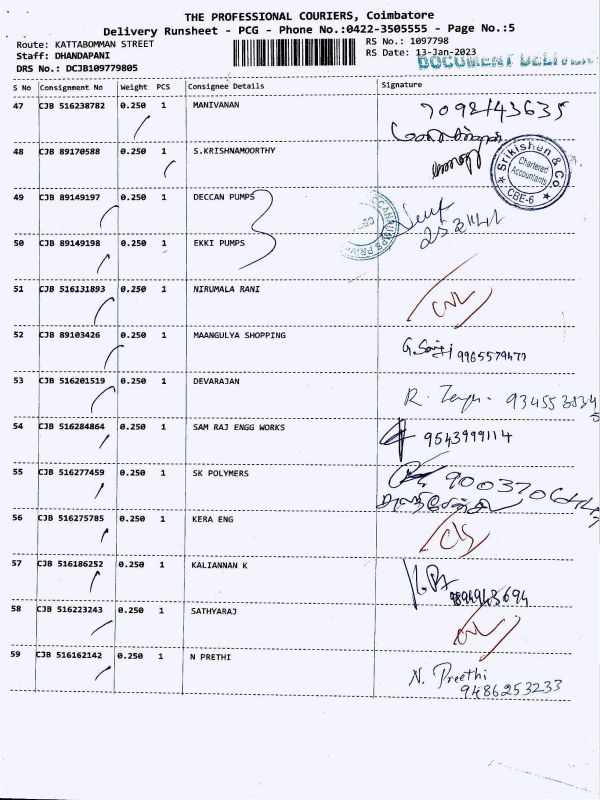 THE PROFESSIONAL COURIERS, Coimbatore
Delivery Runsheet - PCG - Phone No.:0422-3505555 - Page No.:5
Route: KATTABOMMAN STREET
RS No.: 1097798
Staff: DHANDAPANI
RS Date: 13-Jan-2023
DRS No.: DCJB109779805
DOCUMENT DELIVER
S No Consignment No Weight PCS Consignee Details Signature
47 CJB 516238782 0.250 1 MANIVANAN 7098143635
48 CJB 89170588 0.250 1 S.KRISHNAMOORTHY
Srikishen & Co
Chartered
Accountants
CBE-6
49 CJB 89149197 0.250 1 DECCAN PUMPS
50 CJB 89149198 0.250 1 EKKI PUMPS
51 CJB 516131893 0.250 1 NIRUMALA RANI CNL
52 CJB 89103426 0.250 1 MAANGULYA SHOPPING 9965579477
53 CJB 516201519 0.250 1 DEVARAJAN R.
54 CJB 516284864 0.250 1 SAM RAJ ENGG WORKS 9543999114
55 CJB 516277459 0.250 1 SK POLYMERS
56 CJB 516275785 0.250 1 KERA ENG
57 CJB 516186252 0.250 1 KALIANNAN K 9894943694
58 CJB 516223243 0.250 1 SATHYARAJ CNL
59 CJB 516162142 0.250 1 N PRETHI N. Preethi
9486253233